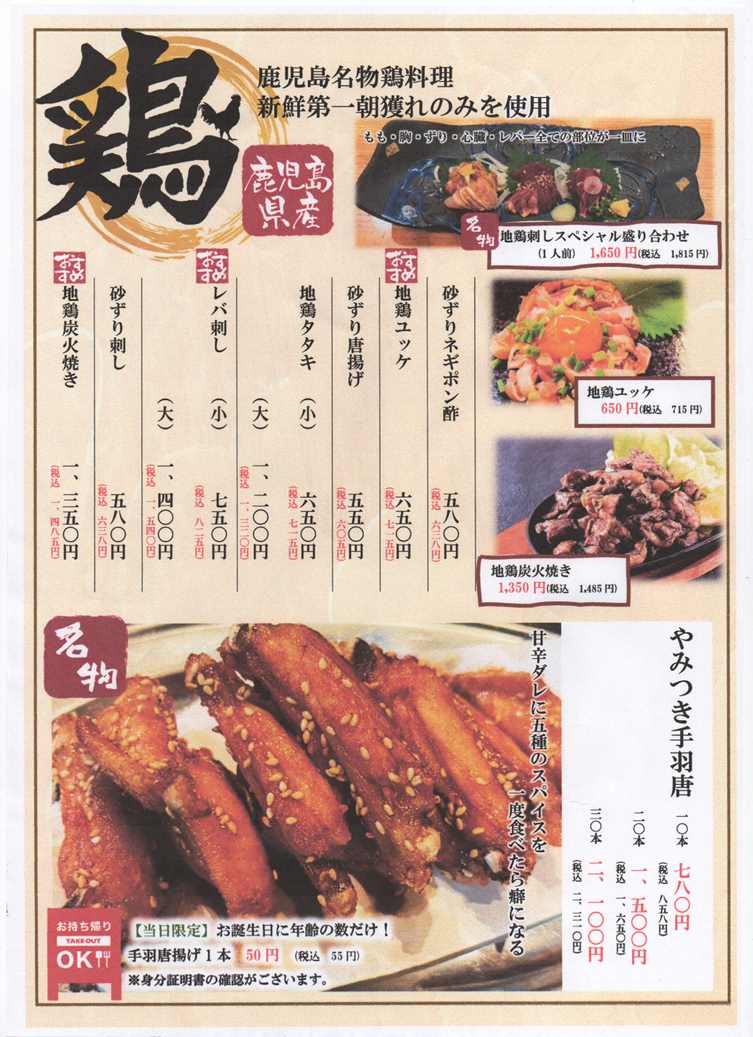 鶏
鹿児島名物鶏料理
新鮮第一朝獲れのみを使用
鹿児島
県産
もも・胸・ずり・心臓・レバー全ての部位が一皿に
名物
地鶏刺しスペシャル盛り合わせ
(1人前) 1,650円(税込 1,815円)
砂ずりネギポン酢 五八〇円
(税込 六三八円)
おすすめ
地鶏ユッケ 六五〇円
(税込 七一五円)
砂ずり唐揚げ 五五〇円
(税込 六〇五円)
地鶏タタキ (小) 六五〇円
(税込 七一五円)
(大) 一、二〇〇円
(税込 一、三二〇円)
おすすめ
レバ刺し (小) 七五〇円
(税込 八二五円)
(大) 一、四〇〇円
(税込 一、五四〇円)
砂ずり刺し 五八〇円
(税込 六三八円)
おすすめ
地鶏炭火焼き 一、三五〇円
(税込 一、四八五円)
地鶏ユッケ
650円(税込 715円)
地鶏炭火焼き
1,350円(税込 1,485円)
名物
やみつき手羽唐 一〇本 七八〇円
(税込 八五八円)
二〇本 一、五〇〇円
(税込 一、六五〇円)
三〇本 二、一〇〇円
(税込 二、三一〇円)
甘辛ダレに五種のスパイスを
一度食べたら癖になる
お持ち帰り
TAKE-OUT
OK
【当日限定】お誕生日に年齢の数だけ!
手羽唐揚げ1本 50円 (税込 55円)
※身分証明書の確認がございます。